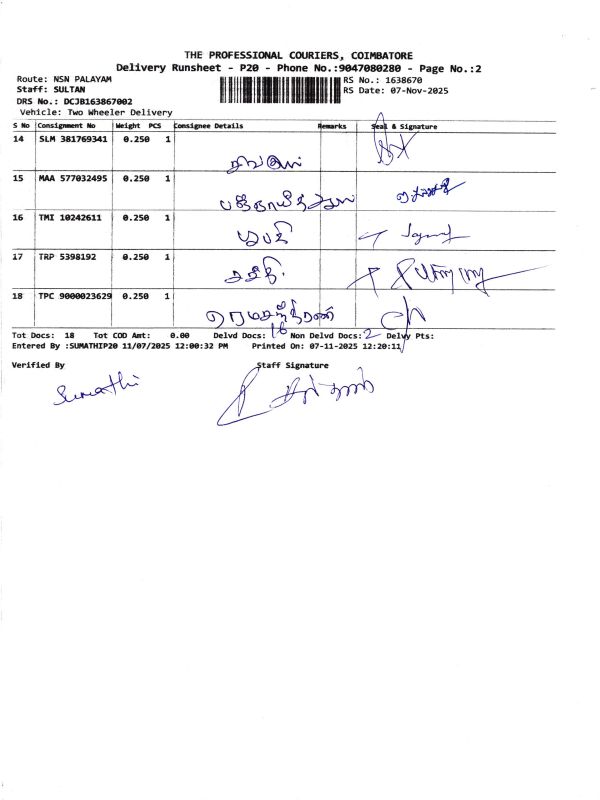 THE PROFESSIONAL COURIERS, COIMBATORE
Delivery Runsheet - P20 - Phone No.:9047080280 - Page No.:2
Route: NSN PALAYAM RS No.: 1638670
Staff: SULTAN RS Date: 07-Nov-2025
DRS No.: DCJB163867002
Vehicle: Two Wheeler Delivery
S No Consignment No Weight PCS Consignee Details Remarks Seal & Signature
14 SLM 381769341 0.250 1
15 MAA 577032495 0.250 1
16 TMI 10242611 0.250 1
17 TRP 5398192 0.250 1
18 TPC 9000023629 0.250 1
Tot Docs: 18 Tot COD Amt: 0.00 Delvd Docs: 16 Non Delvd Docs: 2 Delvy Pts:
Entered By :SUMATHIP20 11/07/2025 12:00:32 PM Printed On: 07-11-2025 12:20:11
Verified By Staff Signature
Sumathi